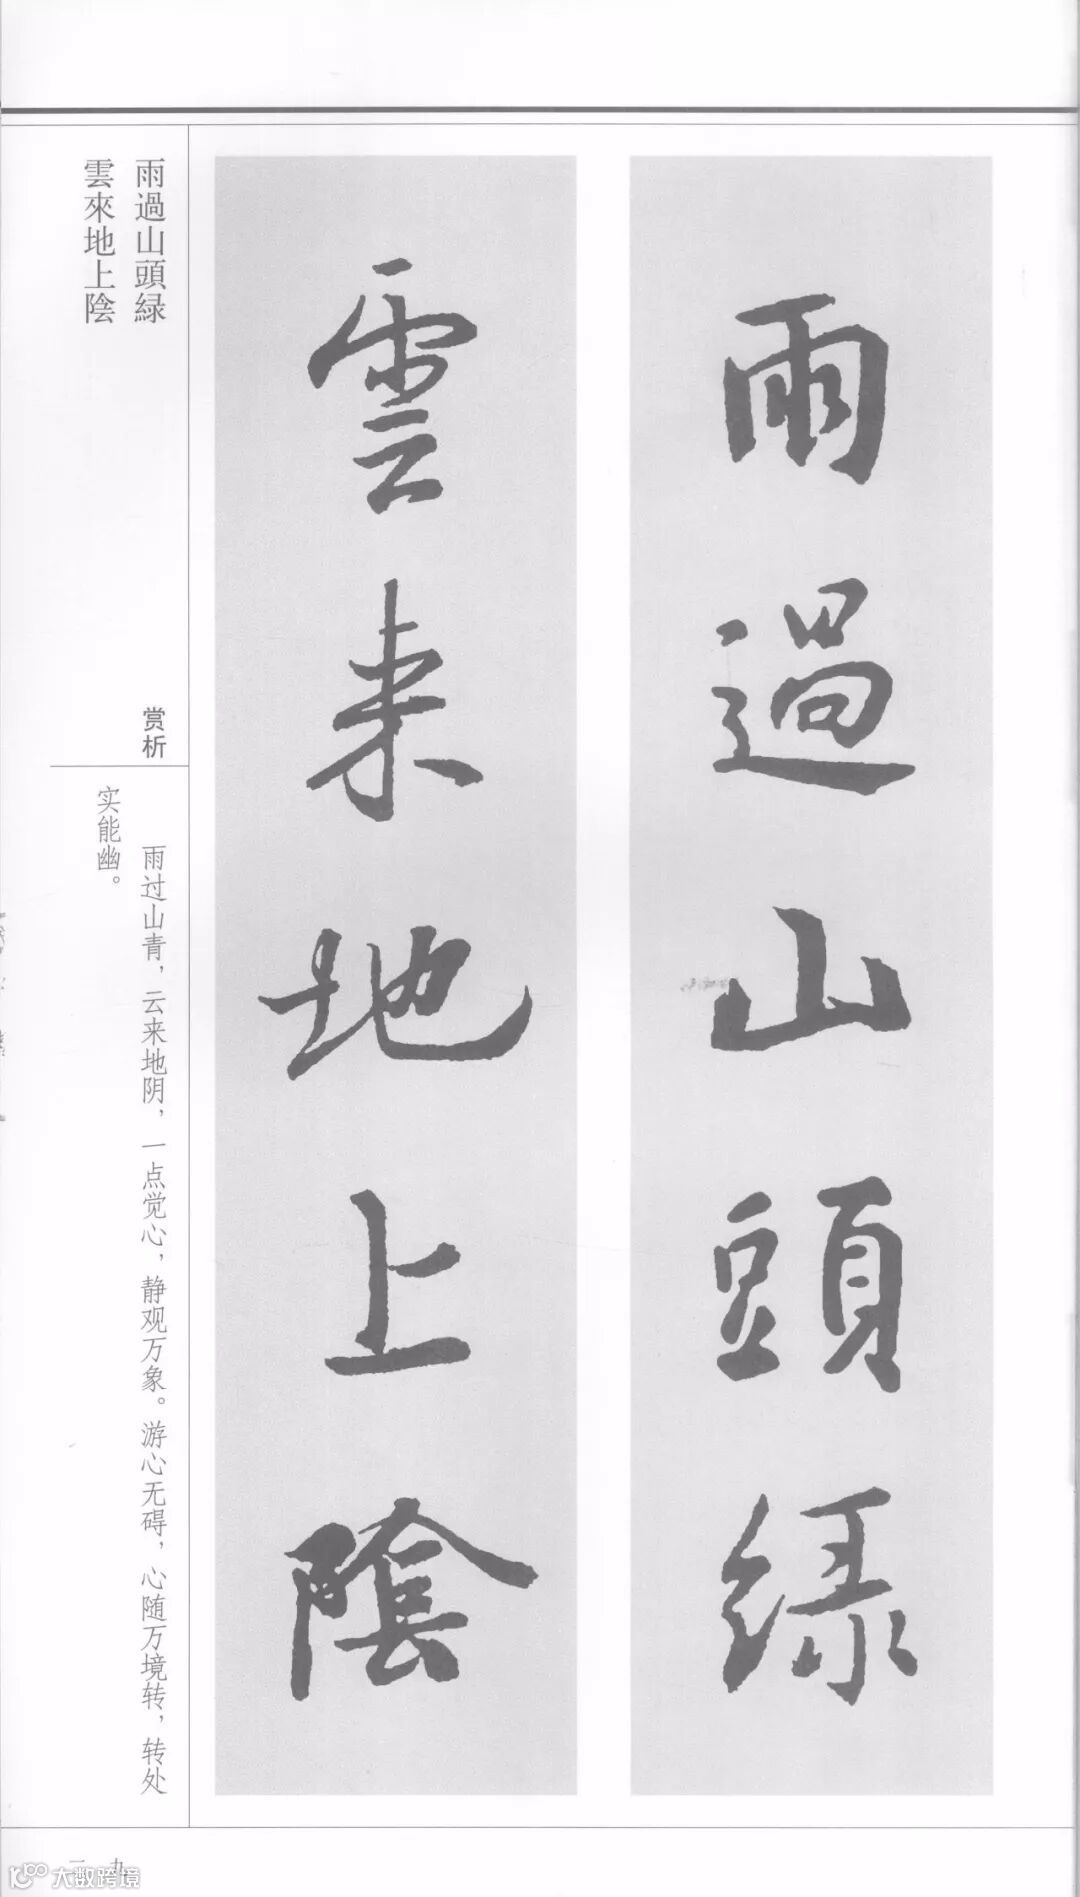 雨過山頭緑
雲来地上陰
雨過山頭緑
雲來地上陰
赏析
雨过山青，云来地阴，一点觉心，静观万象。游心无碍，心随万境转，转处
实能幽。
大数跨境